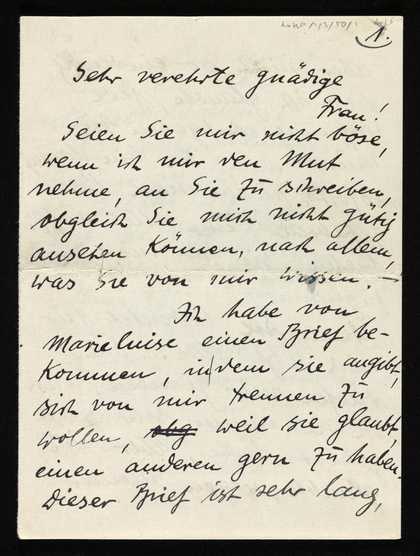 1.
Sehr verehrte gnädige
Frau!
Seien Sie mir nicht böse,
wenn ich mir den Mut
nehme, an Sie zu schreiben,
obgleich Sie mich nicht gütig
ansehen können, nach allem,
was Sie von mir wissen. –
Ich habe von
Marieluise einen Brief be-
kommen, indem sie angibt,
sich von mir trennen zu
wollen, obg weil sie glaubt,
einen anderen gern zu haben.
Dieser Brief ist sehr lang,